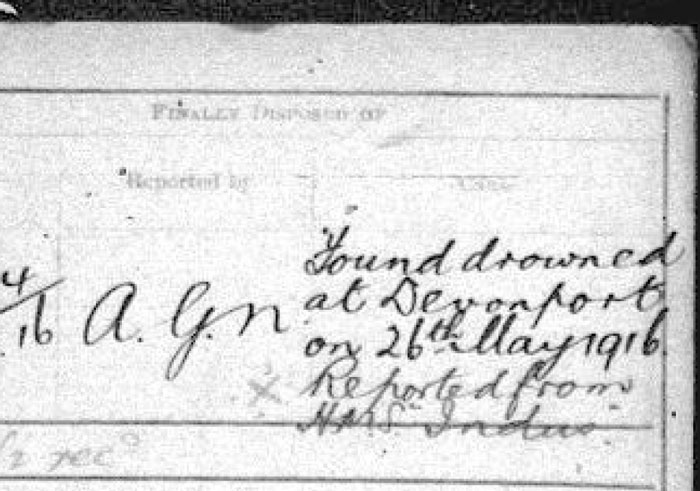 FINALLY DISPOSED OF
Reported by
4/16 A. G. N.
Found drowned
at Devonport
on 26th May 1916.
Reported from
H.M.S. "Indus".
½ recd